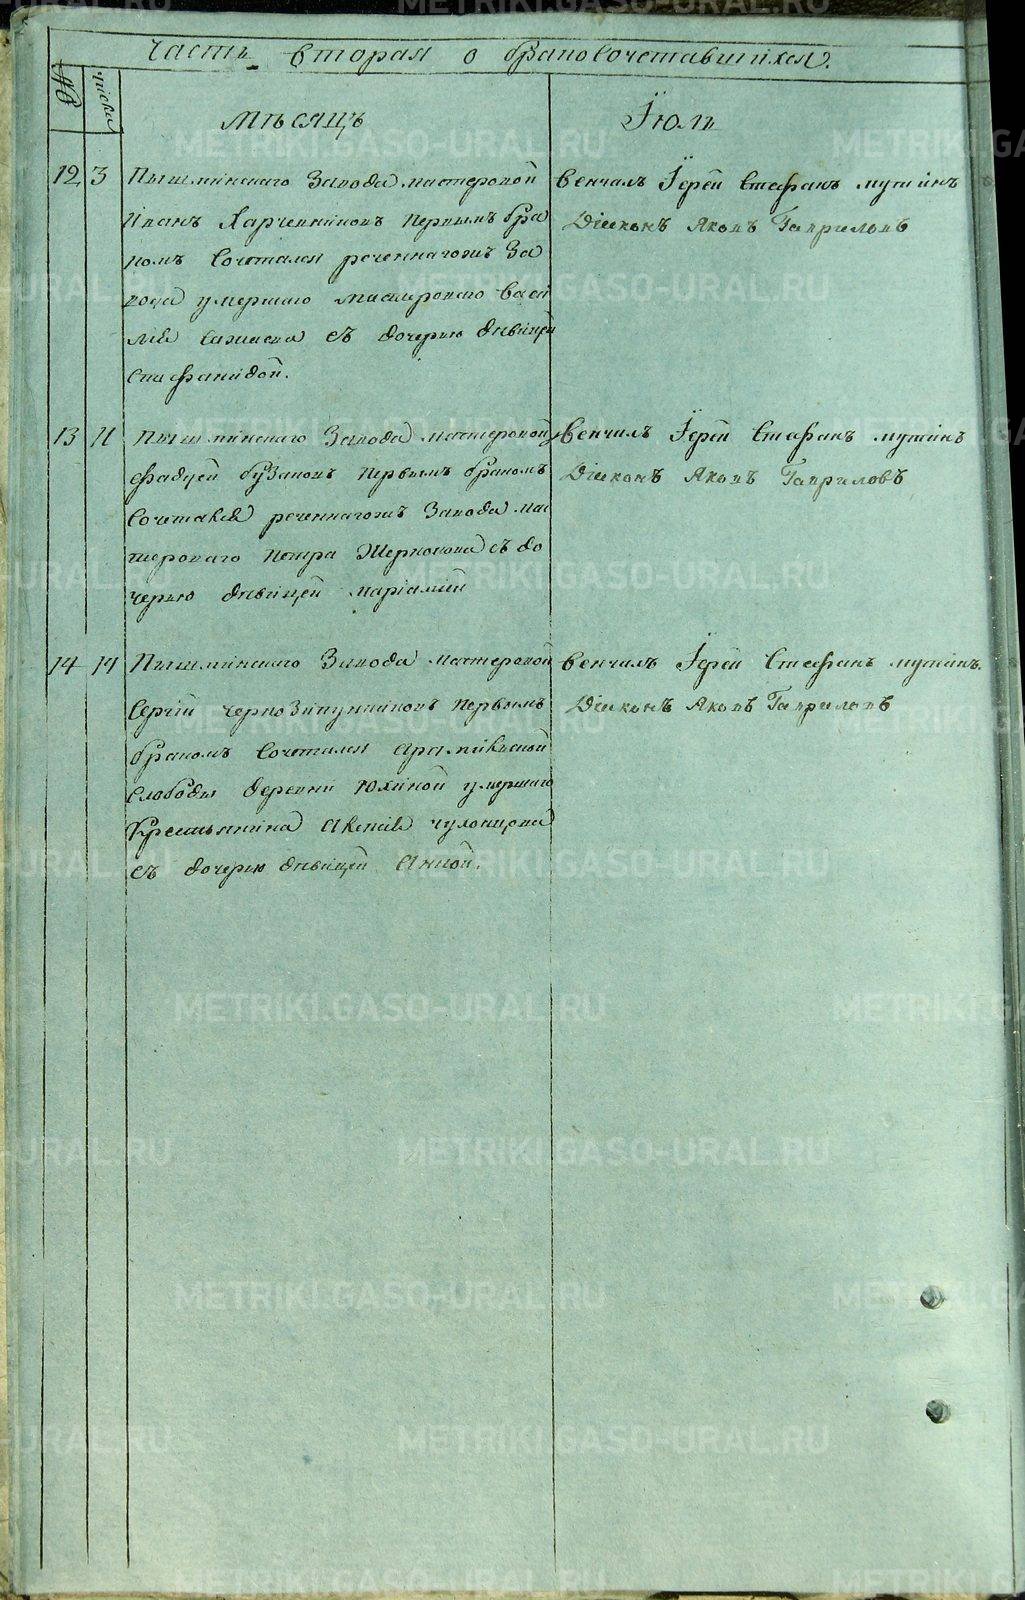 Часть вторая о бракосочетавшихся.
№
числа
Мѣсяцъ
Іюль
12 3 Пышминскаго Завода мастеровой
Иванъ Харчевниковъ первымъ бра
комъ сочетался реченнагожъ За
вода умершаго мастероваго Васи
лія с дочерью дѣвицей
Стефанидой.
Венчалъ Іерей Стефанъ мутинъ
Діяконъ Яковъ Гавриловъ
13 11 Пышминскаго Завода мастеровой
Фадѣй бузановъ первымъ бракомъ
сочетался реченнагожъ Завода мас
тероваго Петра Жернокова съ до
черью дѣвицей маріамїй
Венчалъ Іерей Стефанъ мутинъ
Діяконъ Яковъ Гавриловъ
14 14 Пышминскаго Завода мастеровой
Сергій чернозипунниковъ первымъ
бракомъ сочетался арамильской
слободы деревни Юліной умершаго
Крестьянина
съ дочерью дѣвицей Анной.
Венчалъ Іерей Стефанъ мутинъ.
Діяконъ Яковъ Гавриловъ
METRIKI.GASO-URAL.RU